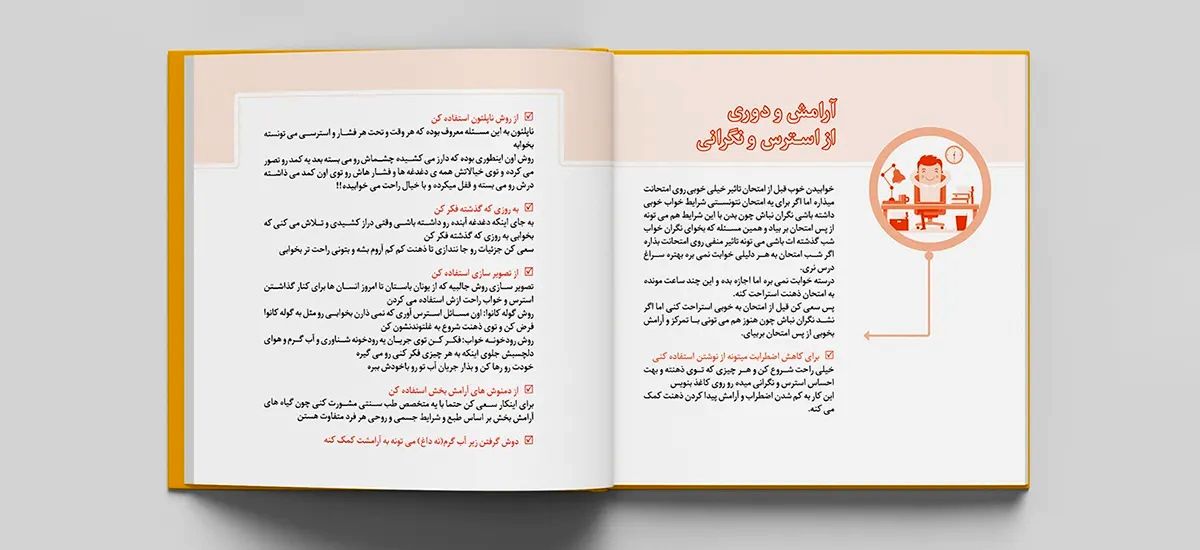 آرامش و دوری
از استرس و نگرانی
خوابیدن خوب قبل از امتحان تاثیر خیلی خوبی روی امتحانت
میذاره اما اگر برای یه امتحان نتونستی شرایط خواب خوبی
داشته باشی نگران نباش چون بدن با این شرایط هم می تونه
از پس امتحان بر بیاد و همین مسئله که بخوای نگران خواب
شب گذشته ات باشی می تونه تاثیر منفی روی امتحانت بذاره
اگر شب امتحان به هر دلیلی خوابت نمی بره بهتره سراغ
درس نری.
درسته خوابت نمی بره اما اجازه بده و این چند ساعت مونده
به امتحان ذهنت استراحت کنه.
پس سعی کن قبل از امتحان به خوبی استراحت کنی اما اگر
نشد نگران نباش چون هنوز هم می تونی با تمرکز و آرامش
بخوبی از پس امتحان بربیای.
برای کاهش اضطرابت میتونه از نوشتن استفاده کنی
خیلی راحت شروع کن و هر چیزی که توی ذهنته و بهت
احساس استرس و نگرانی میده رو روی کاغذ بنویس
این کار به کم شدن اضطراب و آرامش پیدا کردن ذهنت کمک
می کنه.
از روش ناپلئون استفاده کن
ناپلئون به این مسئله معروف بوده که هر وقت و تحت هر فشار و استرسی می تونسته
بخوابه
روش اون اینطوری بوده که دارز می کشیده چشماش رو می بسته بعد یه کمد رو تصور
می کرده و توی خیالاتش همه ی دغدغه ها و فشار هاش رو توی اون کمد می ذاشته
درش رو می بسته و قفل میکرده و با خیال راحت می خوابیده!!
به روزی که گذشته فکر کن
به جای اینکه دغدغه آینده رو داشته باشی وقتی دراز کشیدی و تلاش می کنی که
بخوابی به روزی که گذشته فکر کن
سعی کن جزئیات رو جا نندازی تا ذهنت کم کم آروم بشه و بتونی راحت تر بخوابی
از تصویر سازی استفاده کن
تصویر سازی روش جالبیه که از یونان باستان تا امروز انسان ها برای کنار گذاشتن
استرس و خواب راحت ازش استفاده می کردن
روش گوله کانوا: اون مسائل استرس آوری که نمی ذارن بخوابی رو مثل یه گوله کانوا
فرض کن و توی ذهنت شروع به غلتوندنشون کن
روش رودخونه خواب: فکر کن توی جریان یه رودخونه شناوری و آب گرم و هوای
دلچسبش جلوی اینکه به هر چیزی فکر کنی رو می گیره
خودت رو رها کن و بذار جریان آب تو رو باخودش ببره
از دمنوش های آرامش بخش استفاده کن
برای اینکار سعی کن حتما با یه متخصص طب سنتی مشورت کنی چون گیاه های
آرامش بخش بر اساس طبع و شرایط جسمی و روحی هر فرد متفاوت هستن
دوش گرفتن زیر آب گرم(نه داغ) می تونه به آرامشت کمک کنه